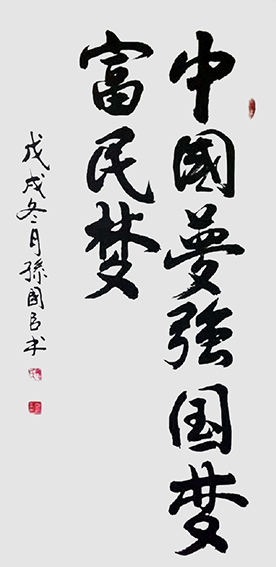 中國夢強国梦
富民梦
戊戌冬月孫國